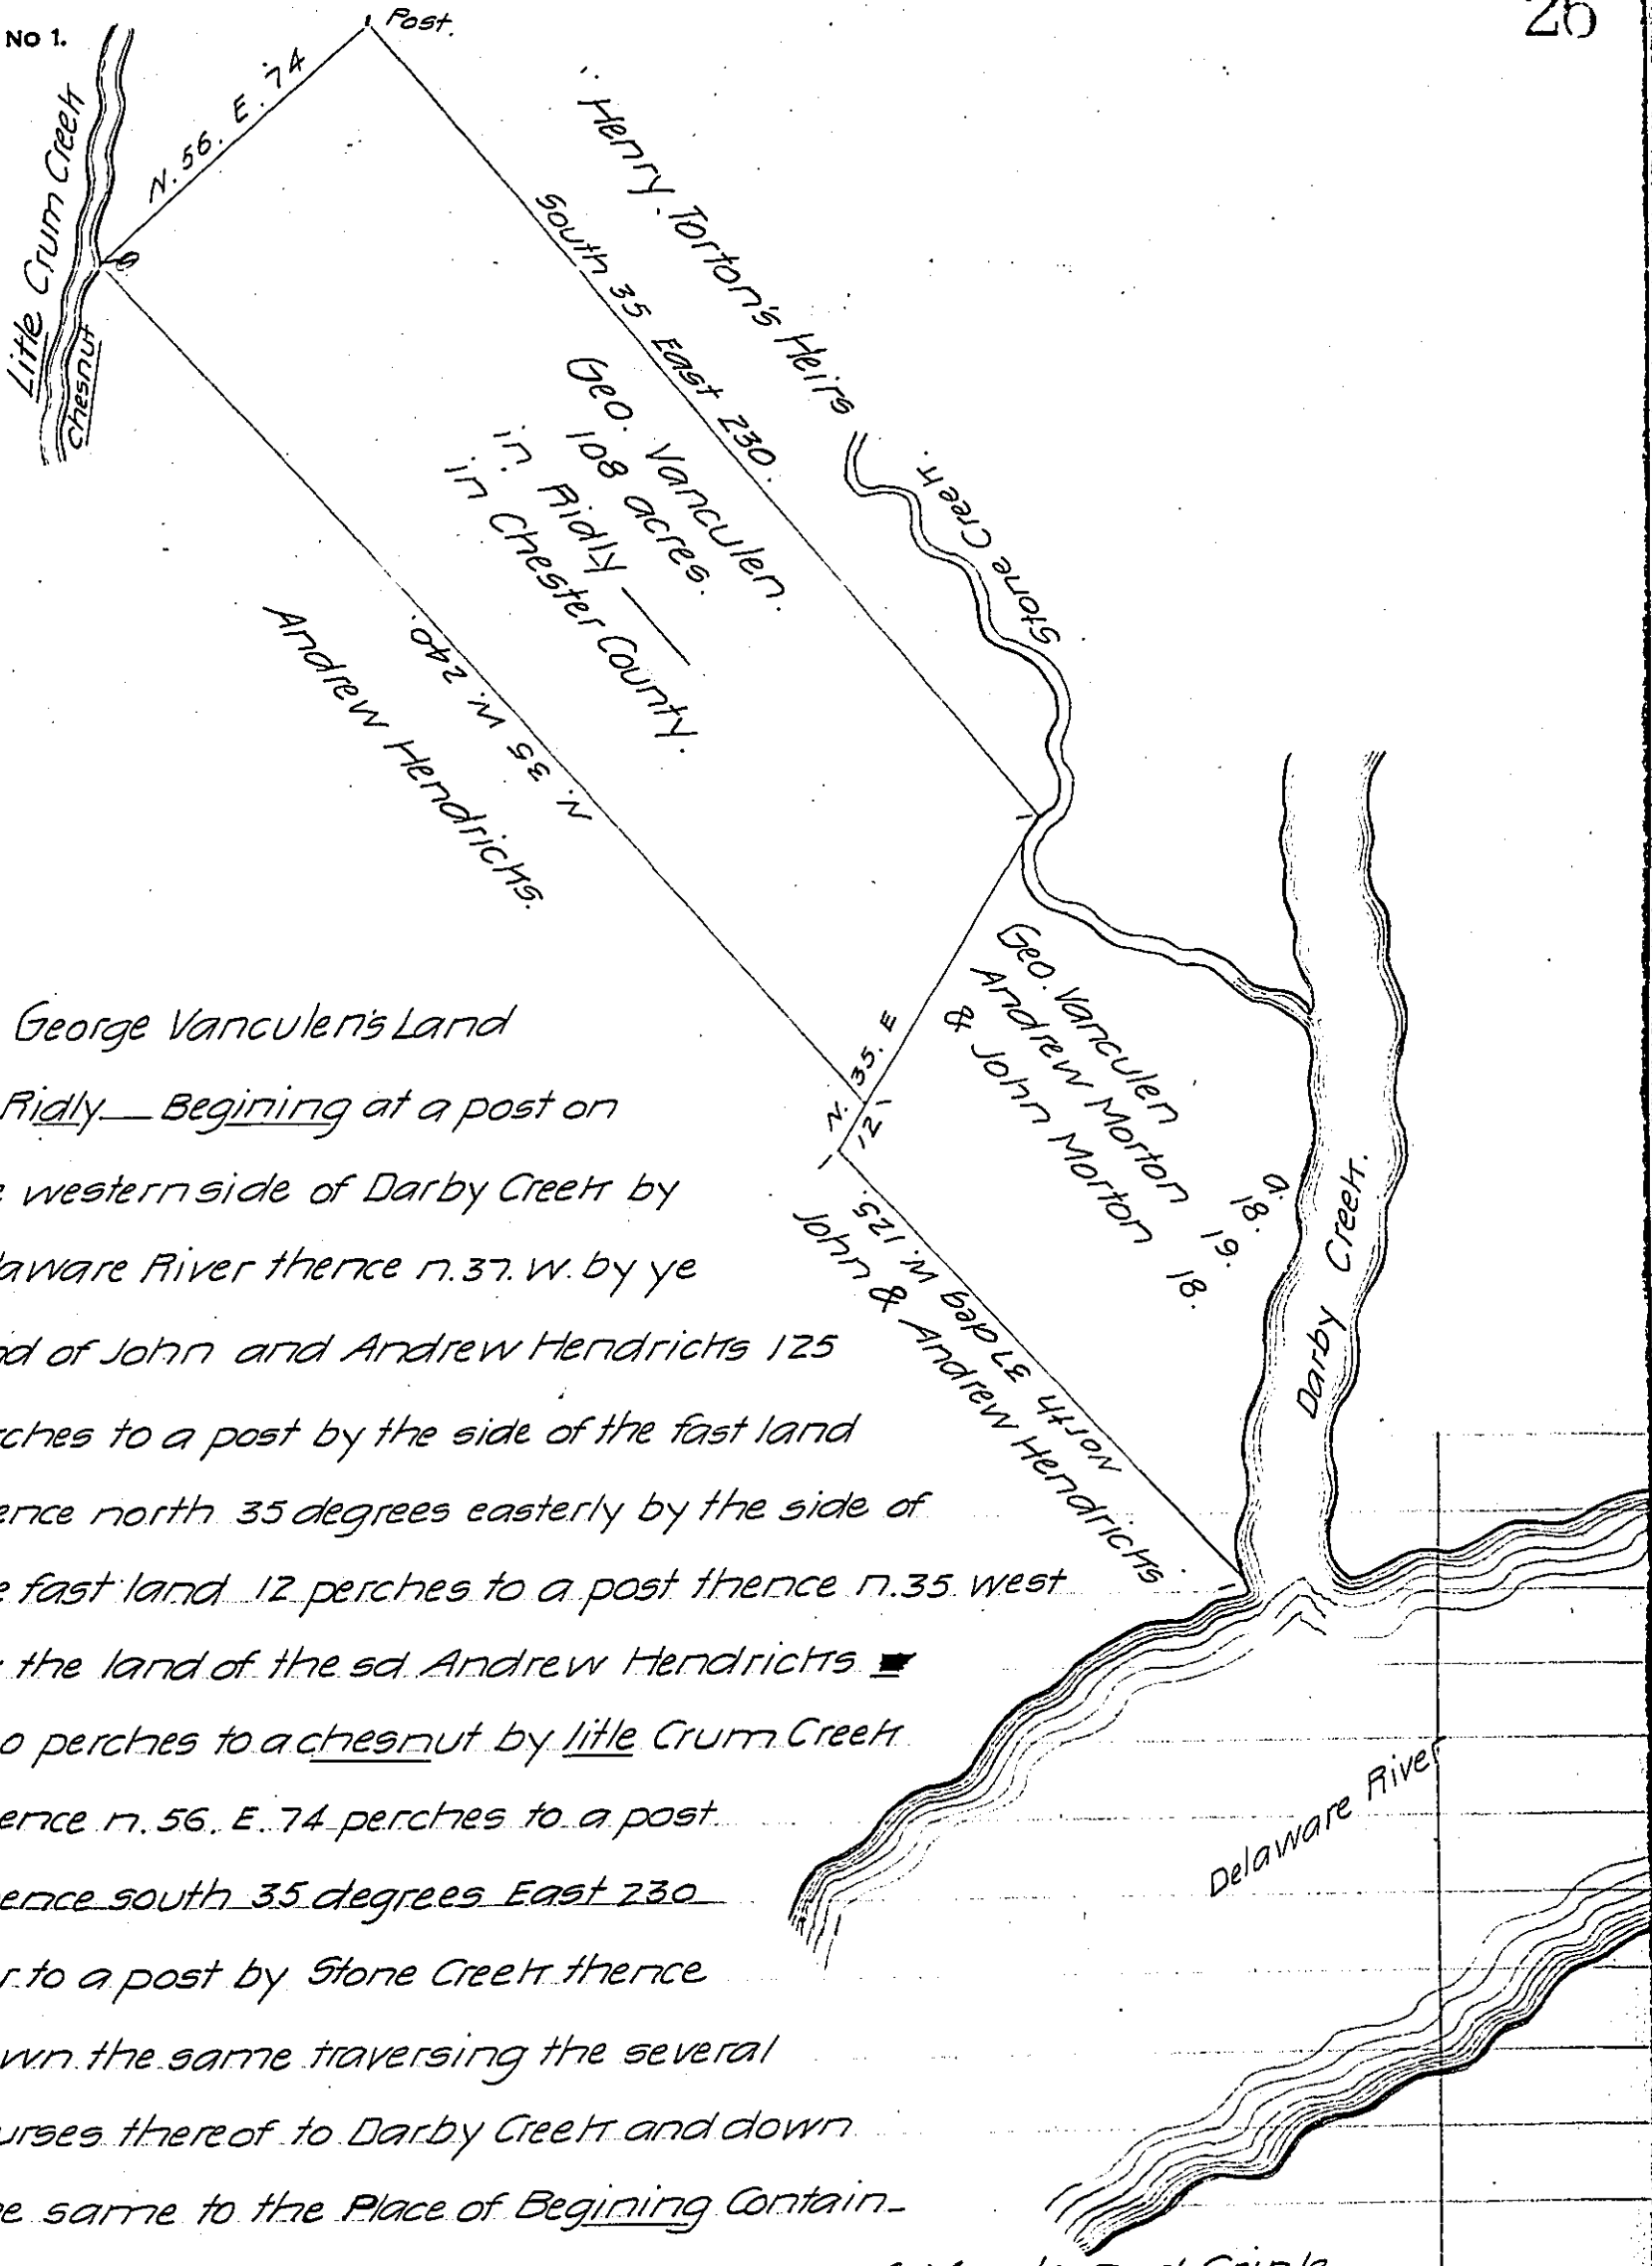 No 1.
26
Post.
N. 56. E. 74
Litle Crum Creek
Chesnut
Henry. Torton's Heirs
South 35 East 230.
Geo. Vanculen.
108 acres.
in Ridly
in Chester County.
Stone Creek.
N. 35 W. 240.
Andrew Hendricks.
N. 35. E
12
Geo. Vanculen 18. a.
Andrew Morton 19.
& John Morton 18.
North 37 deg W. 125.
John & Andrew Hendricks
Darby Creek.
Delaware River
George Vanculen's Land
Ridly — Begining at a post on
western side of Darby Creek by
aware River thence n. 37. W. by ye
d of John and Andrew Hendricks 125
ches to a post by the side of the fast land
ence north 35 degrees easterly by the side of
e fast land 12 perches to a post thence n. 35 west
the land of the sd Andrew Hendricks
o perches to a chesnut by litle Crum Creek
ence n. 56. E. 74 perches to a post
ence south 35 degrees East 230
r to a post by Stone Creek thence
wn the same traversing the several
urses thereof to Darby Creek and down
e same to the Place of Begining Contain-